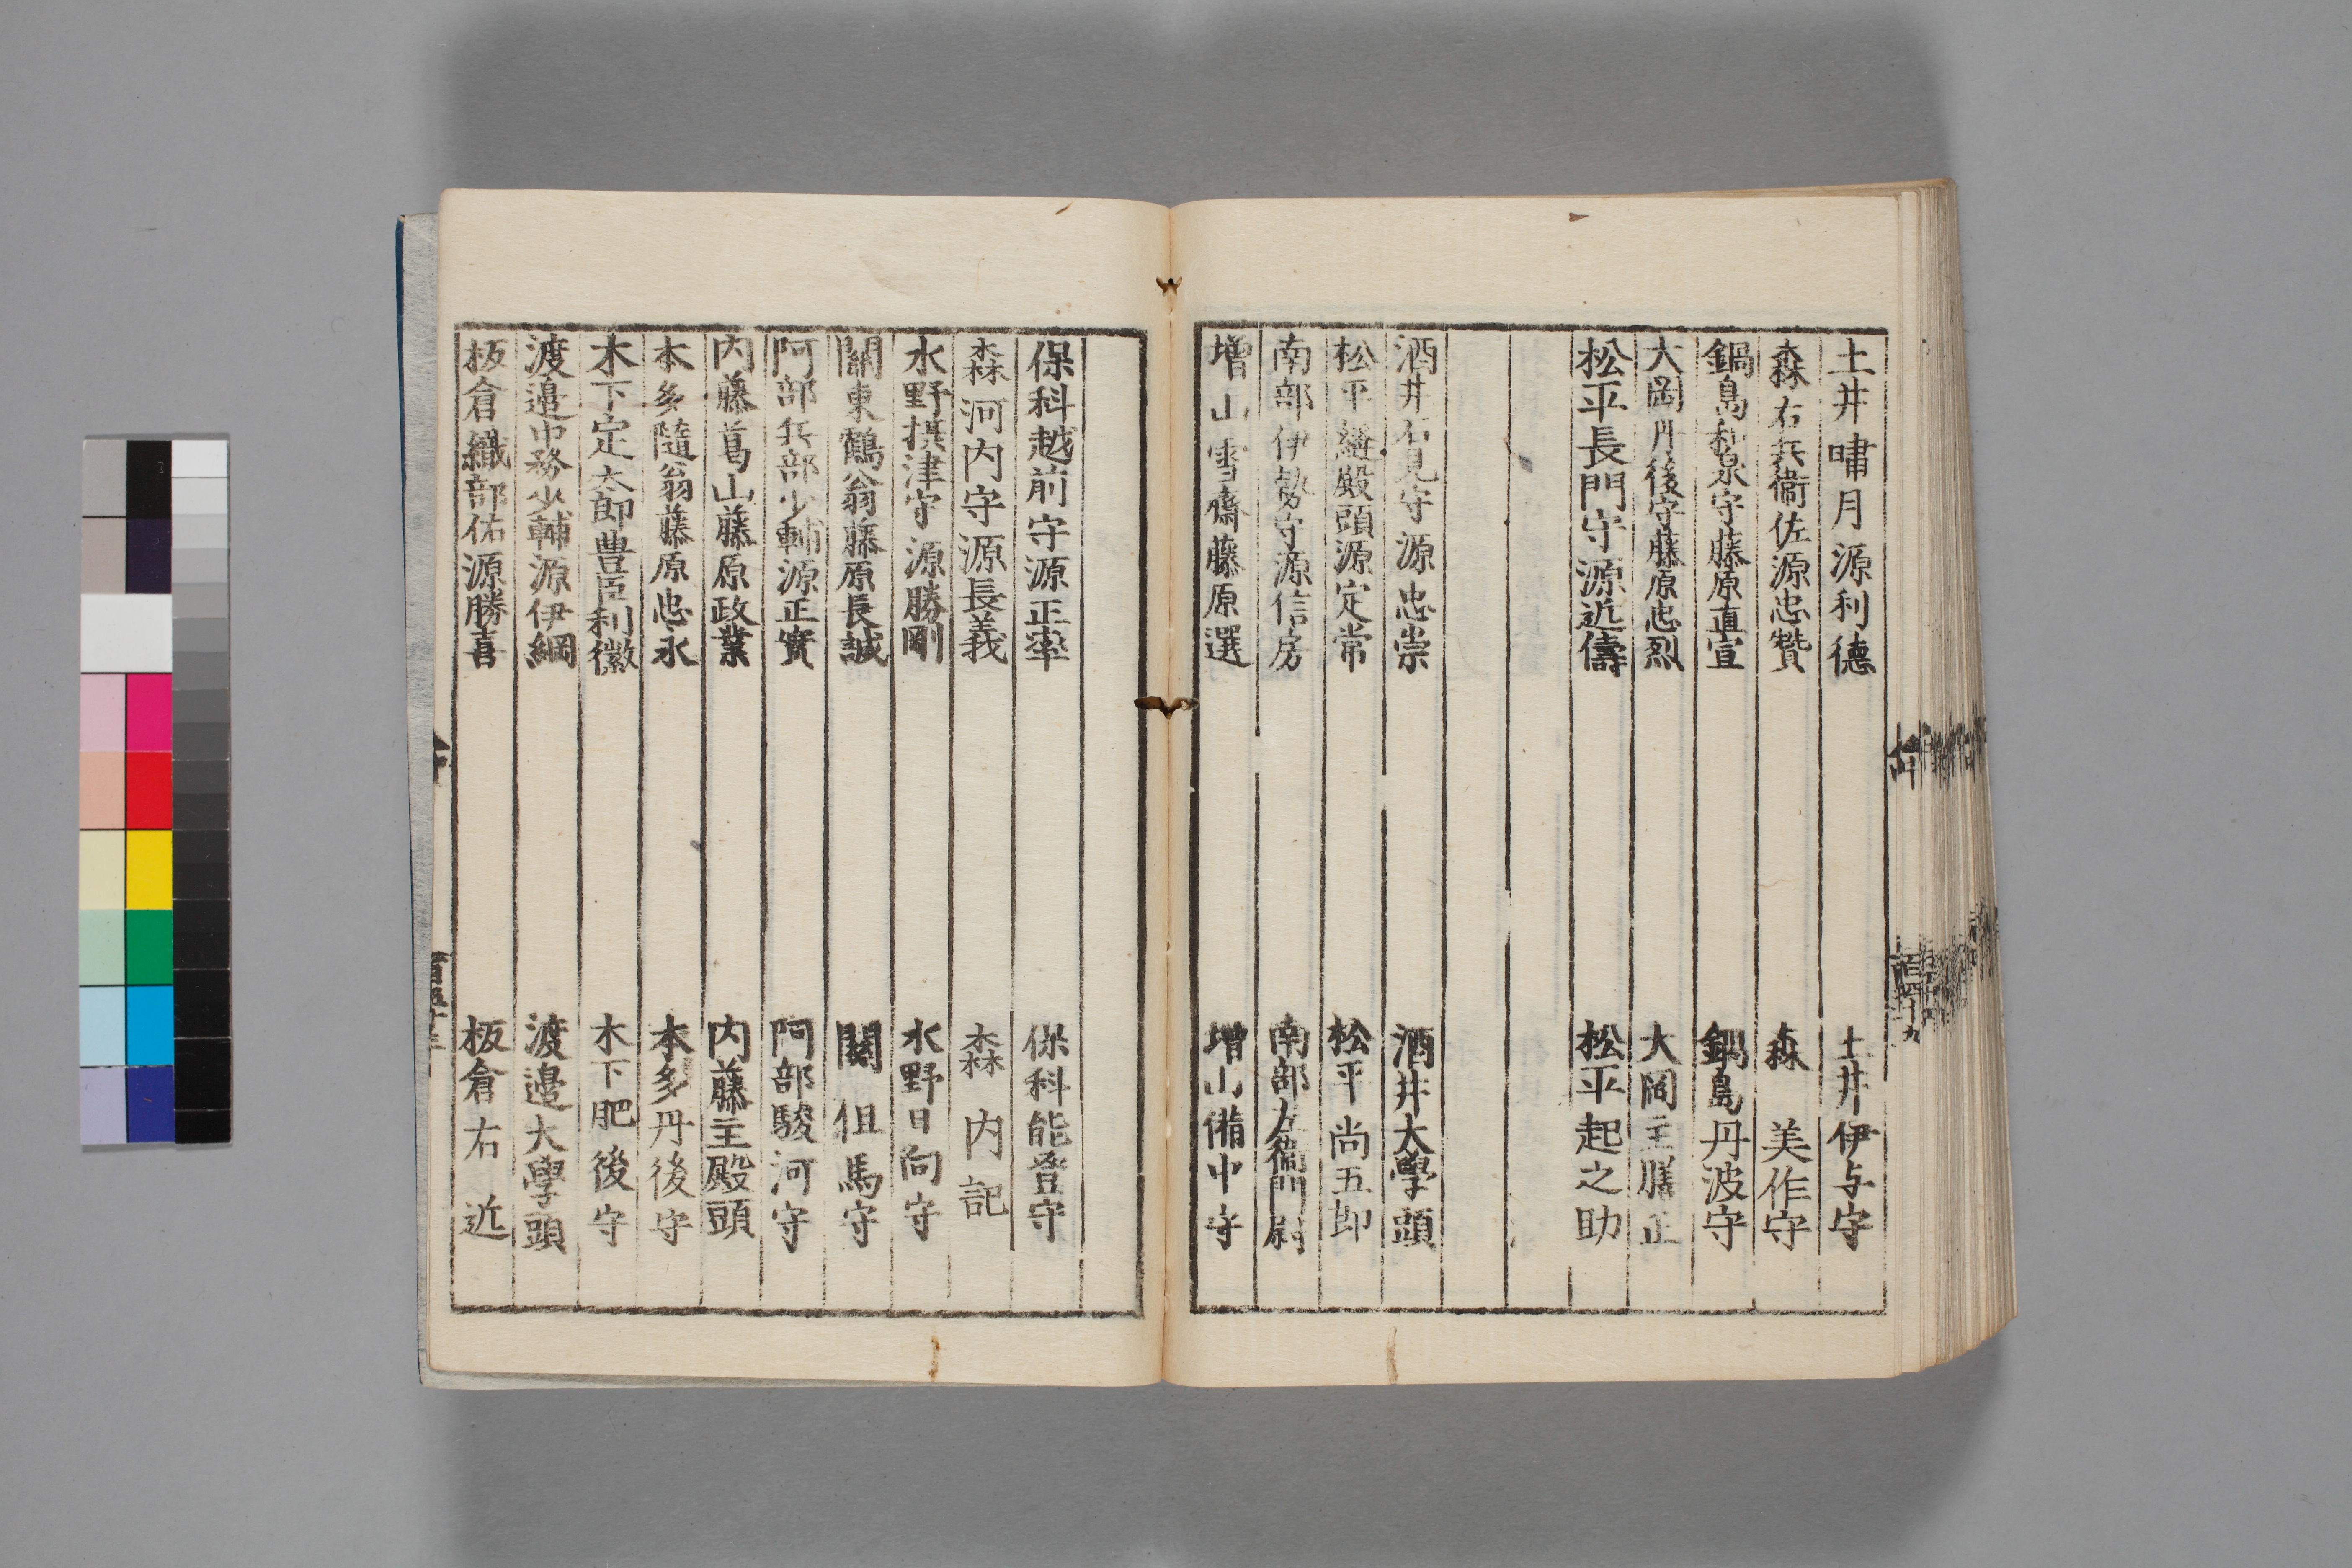 土井嘯月源利德　土井伊与守
森右兵衞佐源忠贊　森　美作守
鍋島和泉守藤原直宣　鍋島丹波守
大岡丹後守藤原忠烈　大岡主膳正
松平長門守源近儔　松平起之助
酒井石見守源忠崇　酒井大學頭
松平縫殿頭源定常　松平尚五郎
南部伊勢守源信房　南部左衞門尉
增山雪齋藤原選　增山備中守
保科越前守源正率　保科能登守
森河内守源長義　森　内記
水野摂津守源勝剛　水野日向守
關東鶴翁藤原長誠　關　但馬守
阿部兵部少輔源正實　阿部駿河守
内藤葛山藤原政業　内藤主殿頭
本多隨翁藤原忠永　本多丹後守
木下定太郎豊臣利徽　木下肥後守
渡邉中務少輔源伊綱　渡邉大學頭
板倉織部佑源勝喜　板倉右近